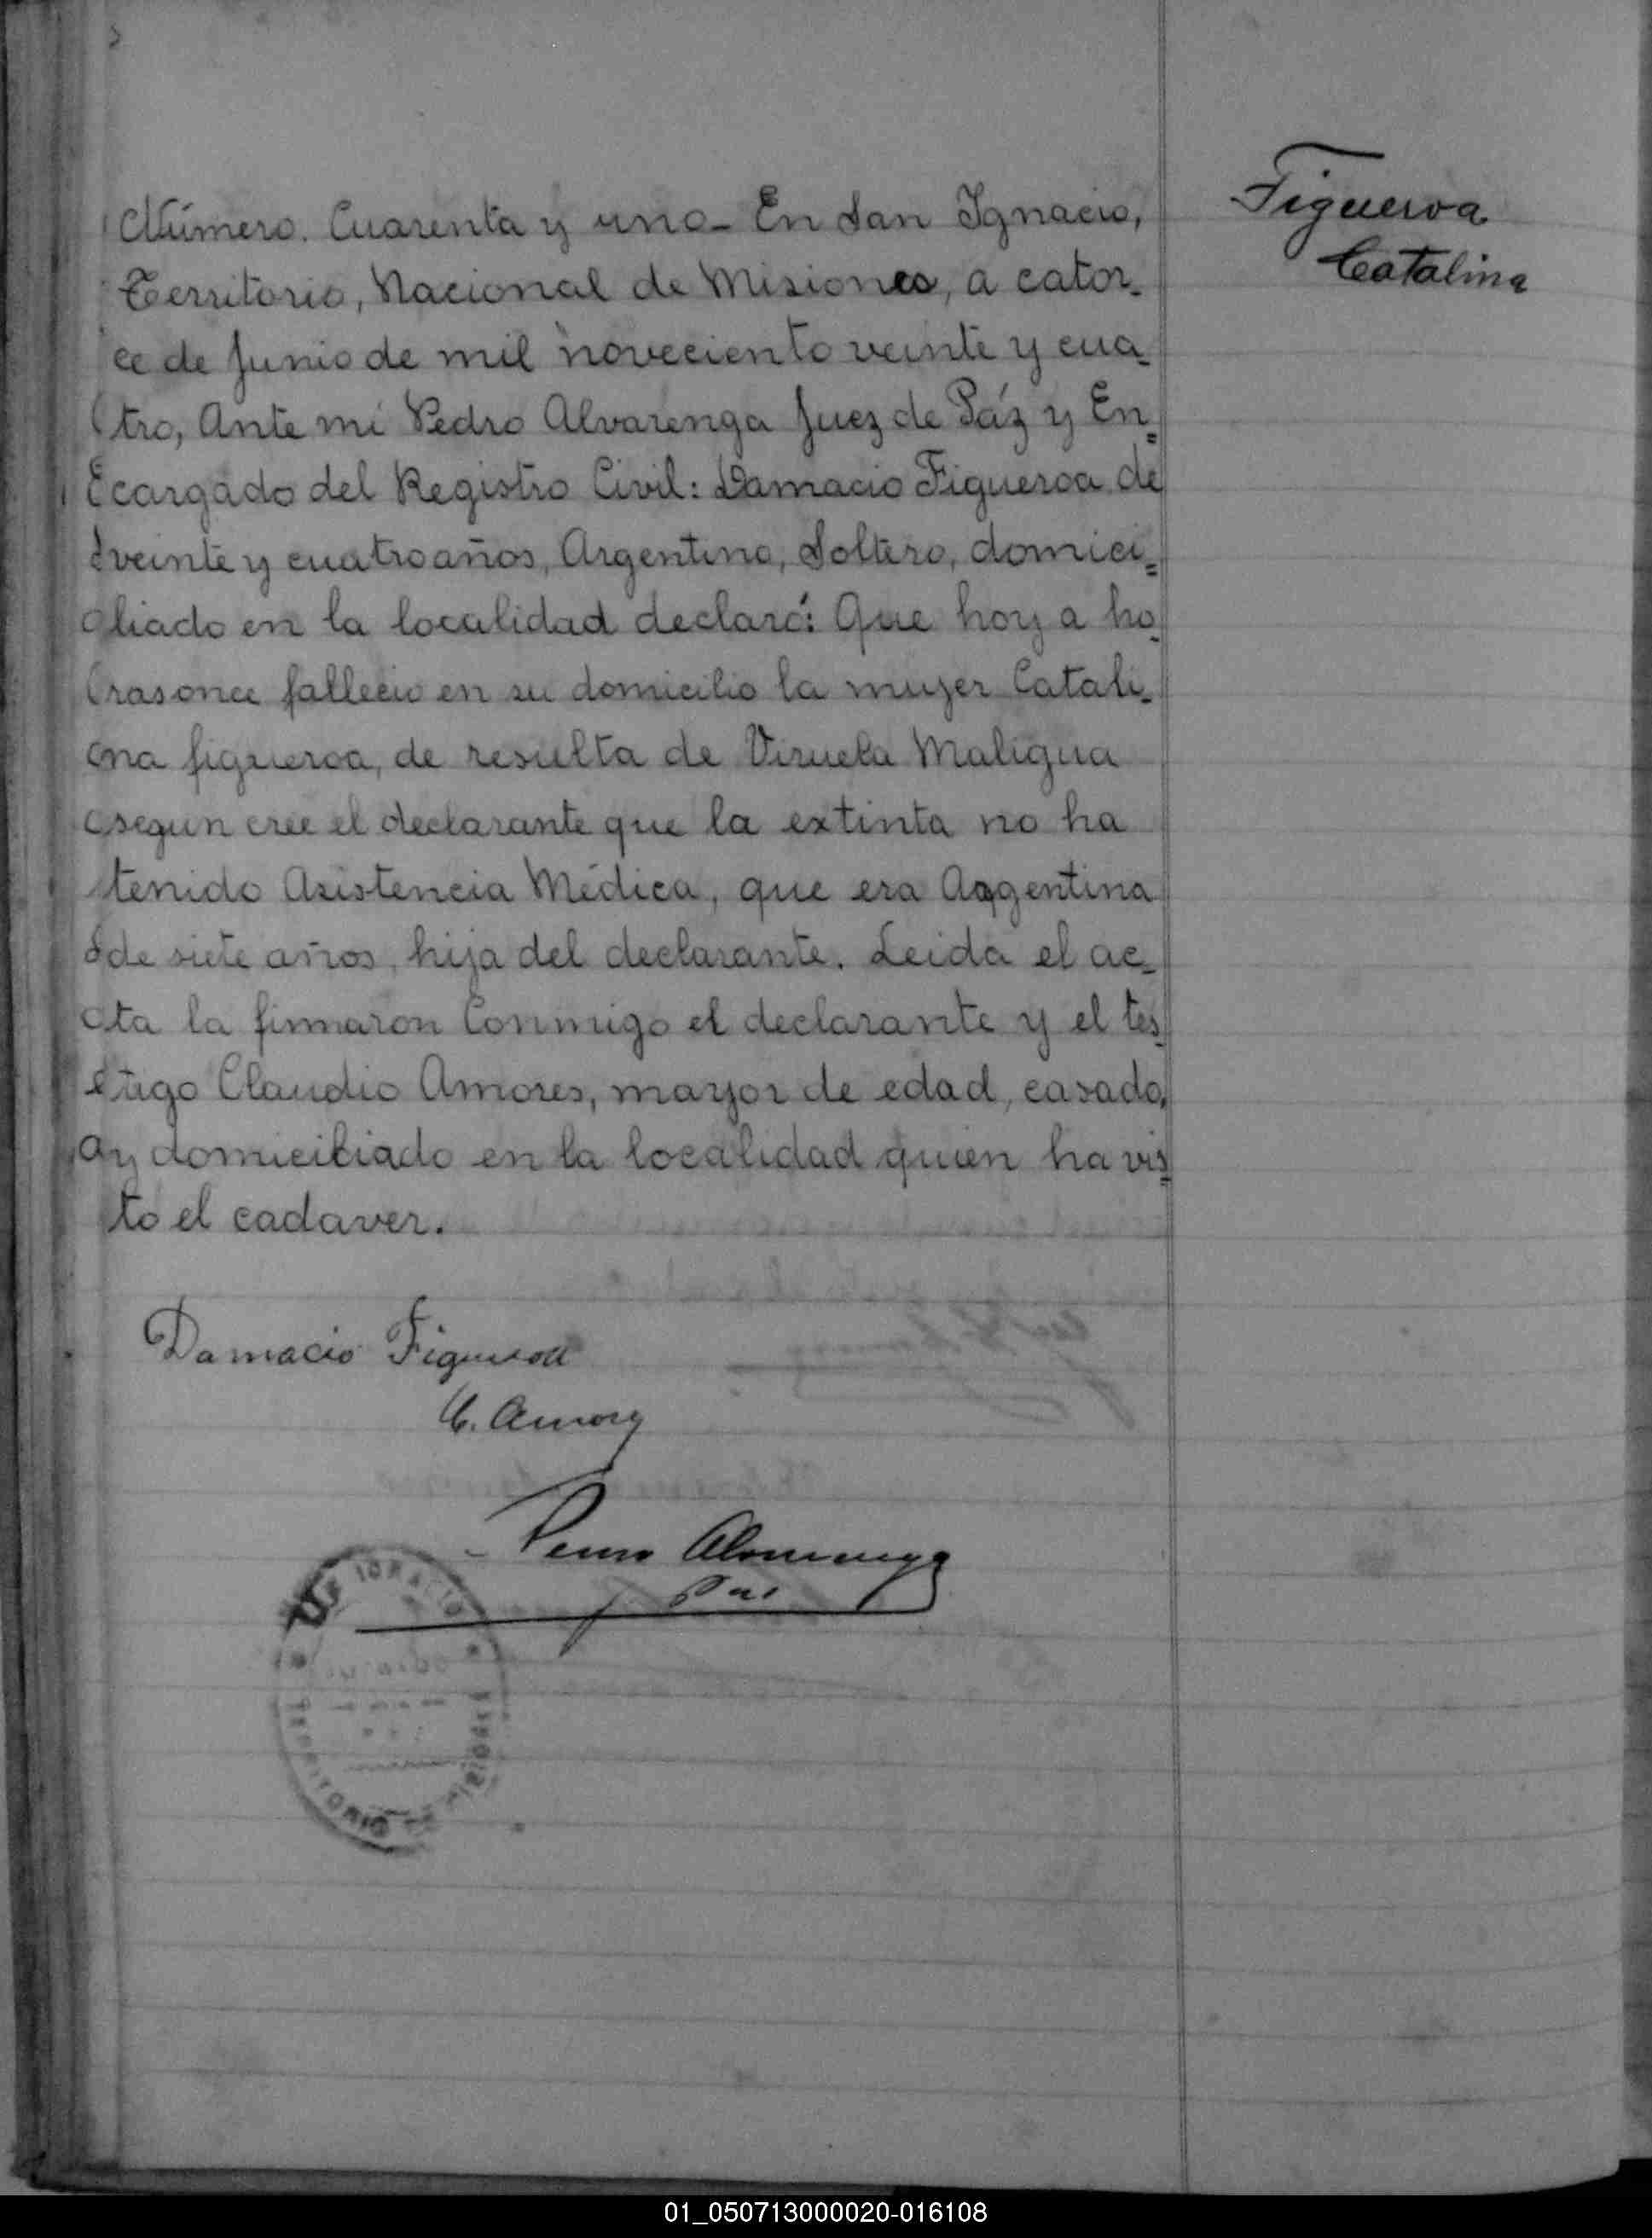 Número. Cuarenta y uno_ En San Ignacio,
Territorio, Nacional de Misiones, a cator-
ce de Junio de mil noveciento veinte y cua-
tro, Ante mi Pedro Alvarenga Juez de Páz y En=
cargado del Registro Civil: Damacio Figueroa de
veinte y cuatro años, Argentino, Soltero, domici=
liado en la localidad declaró: Que hoy a ho-
ras once fallecio en su domicilio la mujer Catali-
na figueroa, de resulta de Viruela Maligna
segun cree el declarante que la extinta no ha
tenido Asistencia Médica, que era Argentina
de siete años, hija del declarante. Leida el ac-
ta la firmaron Conmigo el declarante y el tes-
tigo Claudio Amores, mayor de edad, casado,
y domiciliado en la localidad quien ha vis=
to el cadaver.
Figueroa
Catalina
Damacio Figueroa
C. Amores
Pedro Alvarenga
TERRITORIO DE MISIONES
01_050713000020-016108